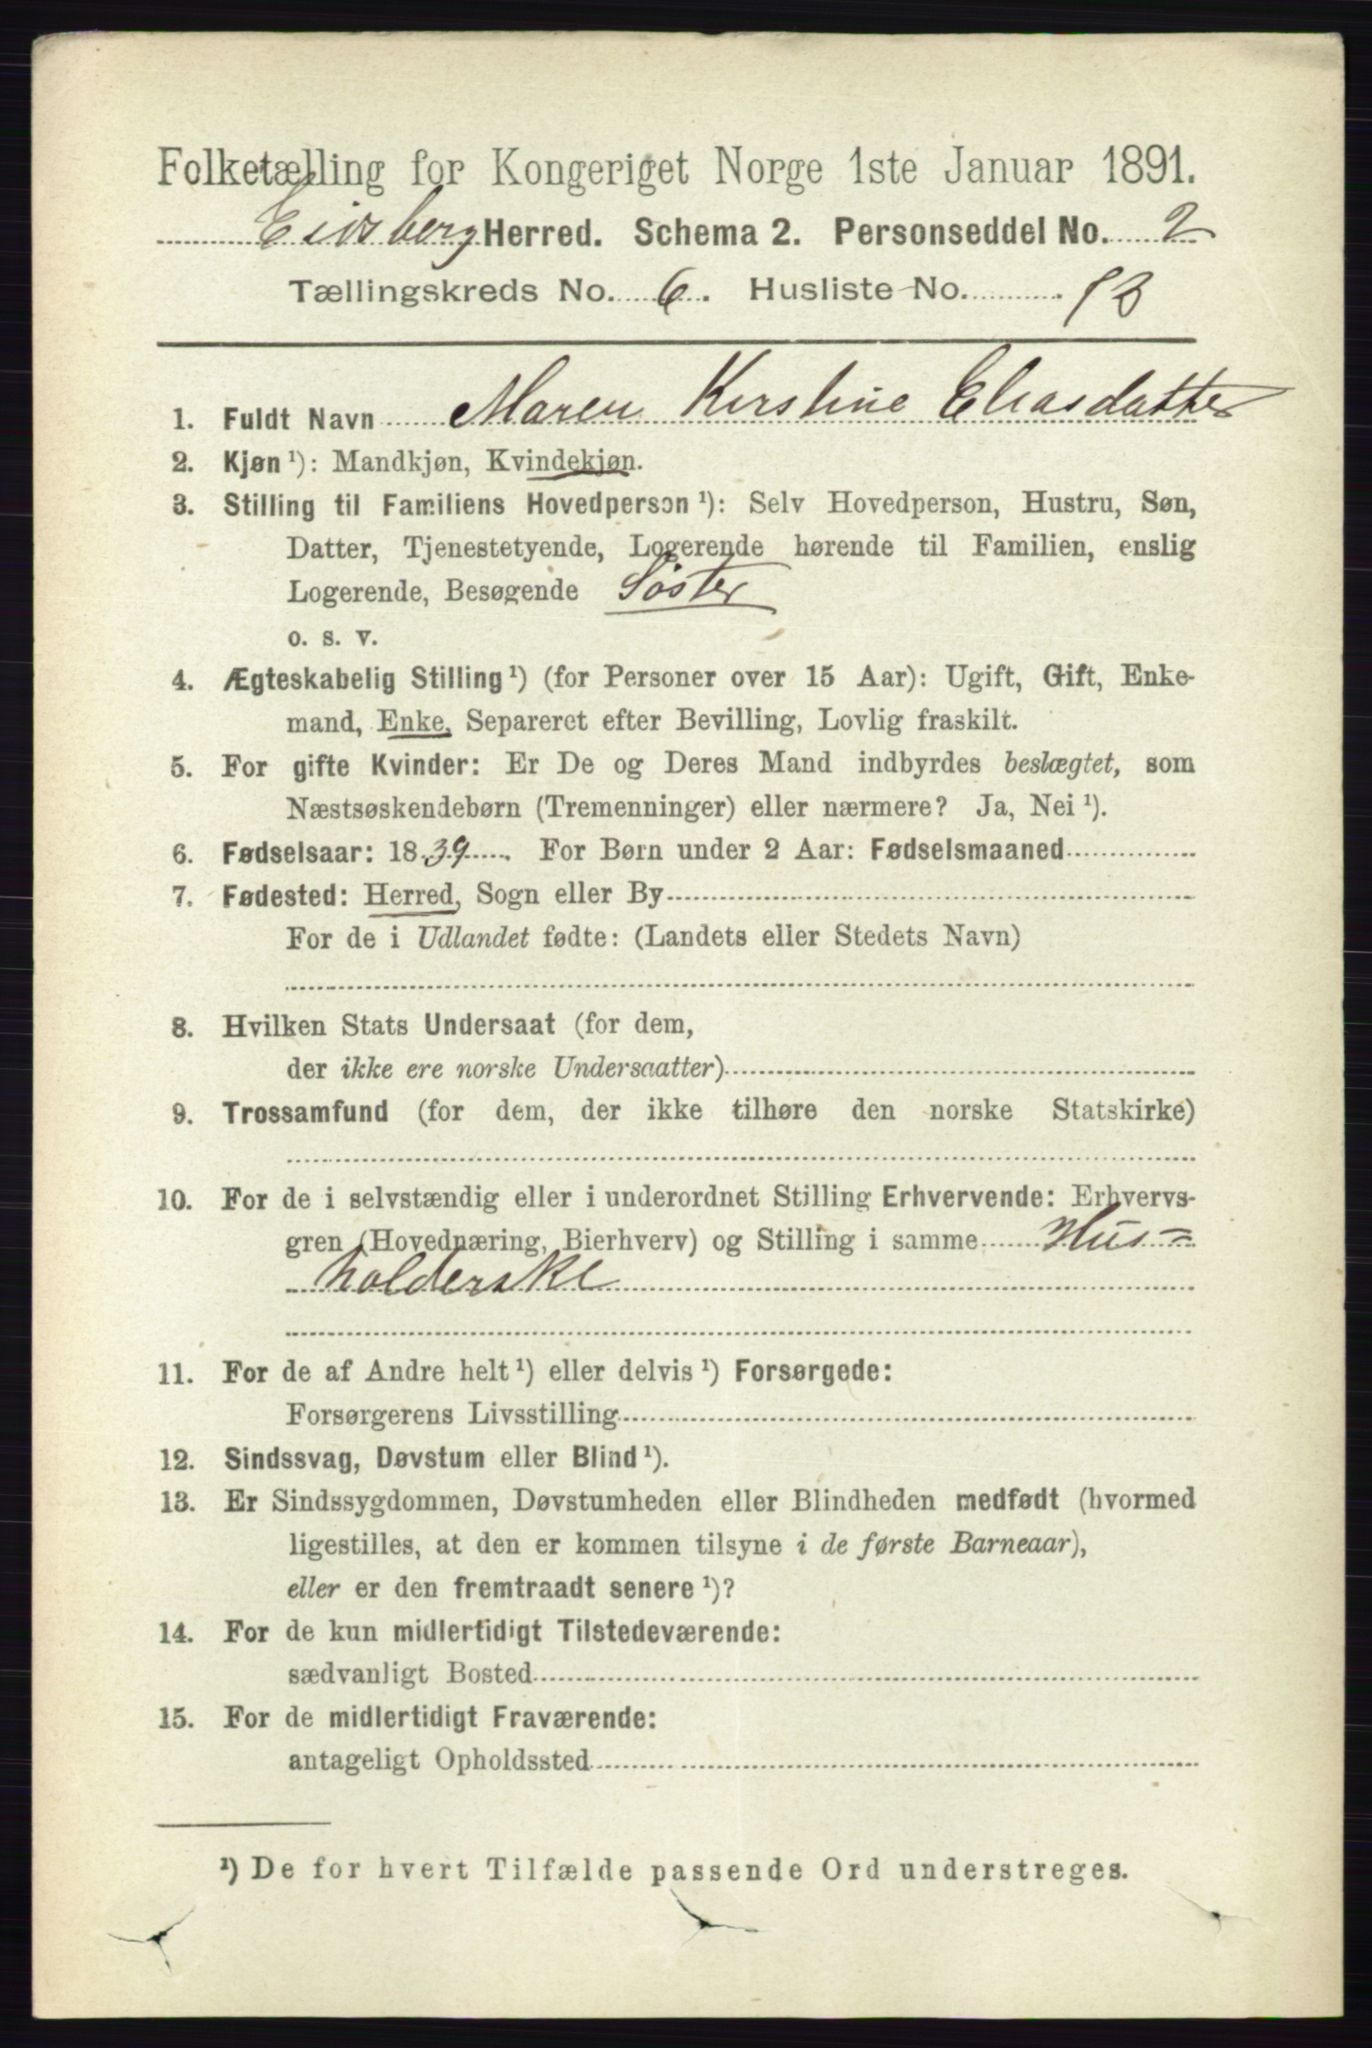 Folketælling for Kongeriget Norge 1ste Januar 1891.
Eidsberg Herred. Schema 2. Personseddel No. 2
Tællingskreds No. 6. Husliste No. 13
1. Fuldt Navn Maren Kirstine Eliasdatter
2. Kjøn ¹): Mandkjøn, Kvindekjøn.
3. Stilling til Familiens Hovedperson ¹): Selv Hovedperson, Hustru, Søn,
Datter, Tjenestetyende, Logerende hørende til Familien, enslig
Logerende, Besøgende Søster
o. s. v.
4. Ægteskabelig Stilling ¹) (for Personer over 15 Aar): Ugift, Gift, Enke-
mand, Enke, Separeret efter Bevilling, Lovlig fraskilt.
5. For gifte Kvinder: Er De og Deres Mand indbyrdes beslægtet, som
Næstsøskendebørn (Tremenninger) eller nærmere? Ja, Nei ¹).
6. Fødselsaar: 1839. For Børn under 2 Aar: Fødselsmaaned
7. Fødested: Herred, Sogn eller By
For de i Udlandet fødte: (Landets eller Stedets Navn)
8. Hvilken Stats Undersaat (for dem,
der ikke ere norske Undersaatter)
9. Trossamfund (for dem, der ikke tilhøre den norske Statskirke)
10. For de i selvstændig eller i underordnet Stilling Erhvervende: Erhvervs-
gren (Hovednæring, Bierhverv) og Stilling i samme Hus=
holderske
11. For de af Andre helt ¹) eller delvis ¹) Forsørgede:
Forsørgerens Livsstilling
12. Sindssvag, Døvstum eller Blind ¹).
13. Er Sindssygdommen, Døvstumheden eller Blindheden medfødt (hvormed
ligestilles, at den er kommen tilsyne i de første Barneaar),
eller er den fremtraadt senere ¹)?
14. For de kun midlertidigt Tilstedeværende:
sædvanligt Bosted
15. For de midlertidigt Fraværende:
antageligt Opholdssted
¹) De for hvert Tilfælde passende Ord understreges.